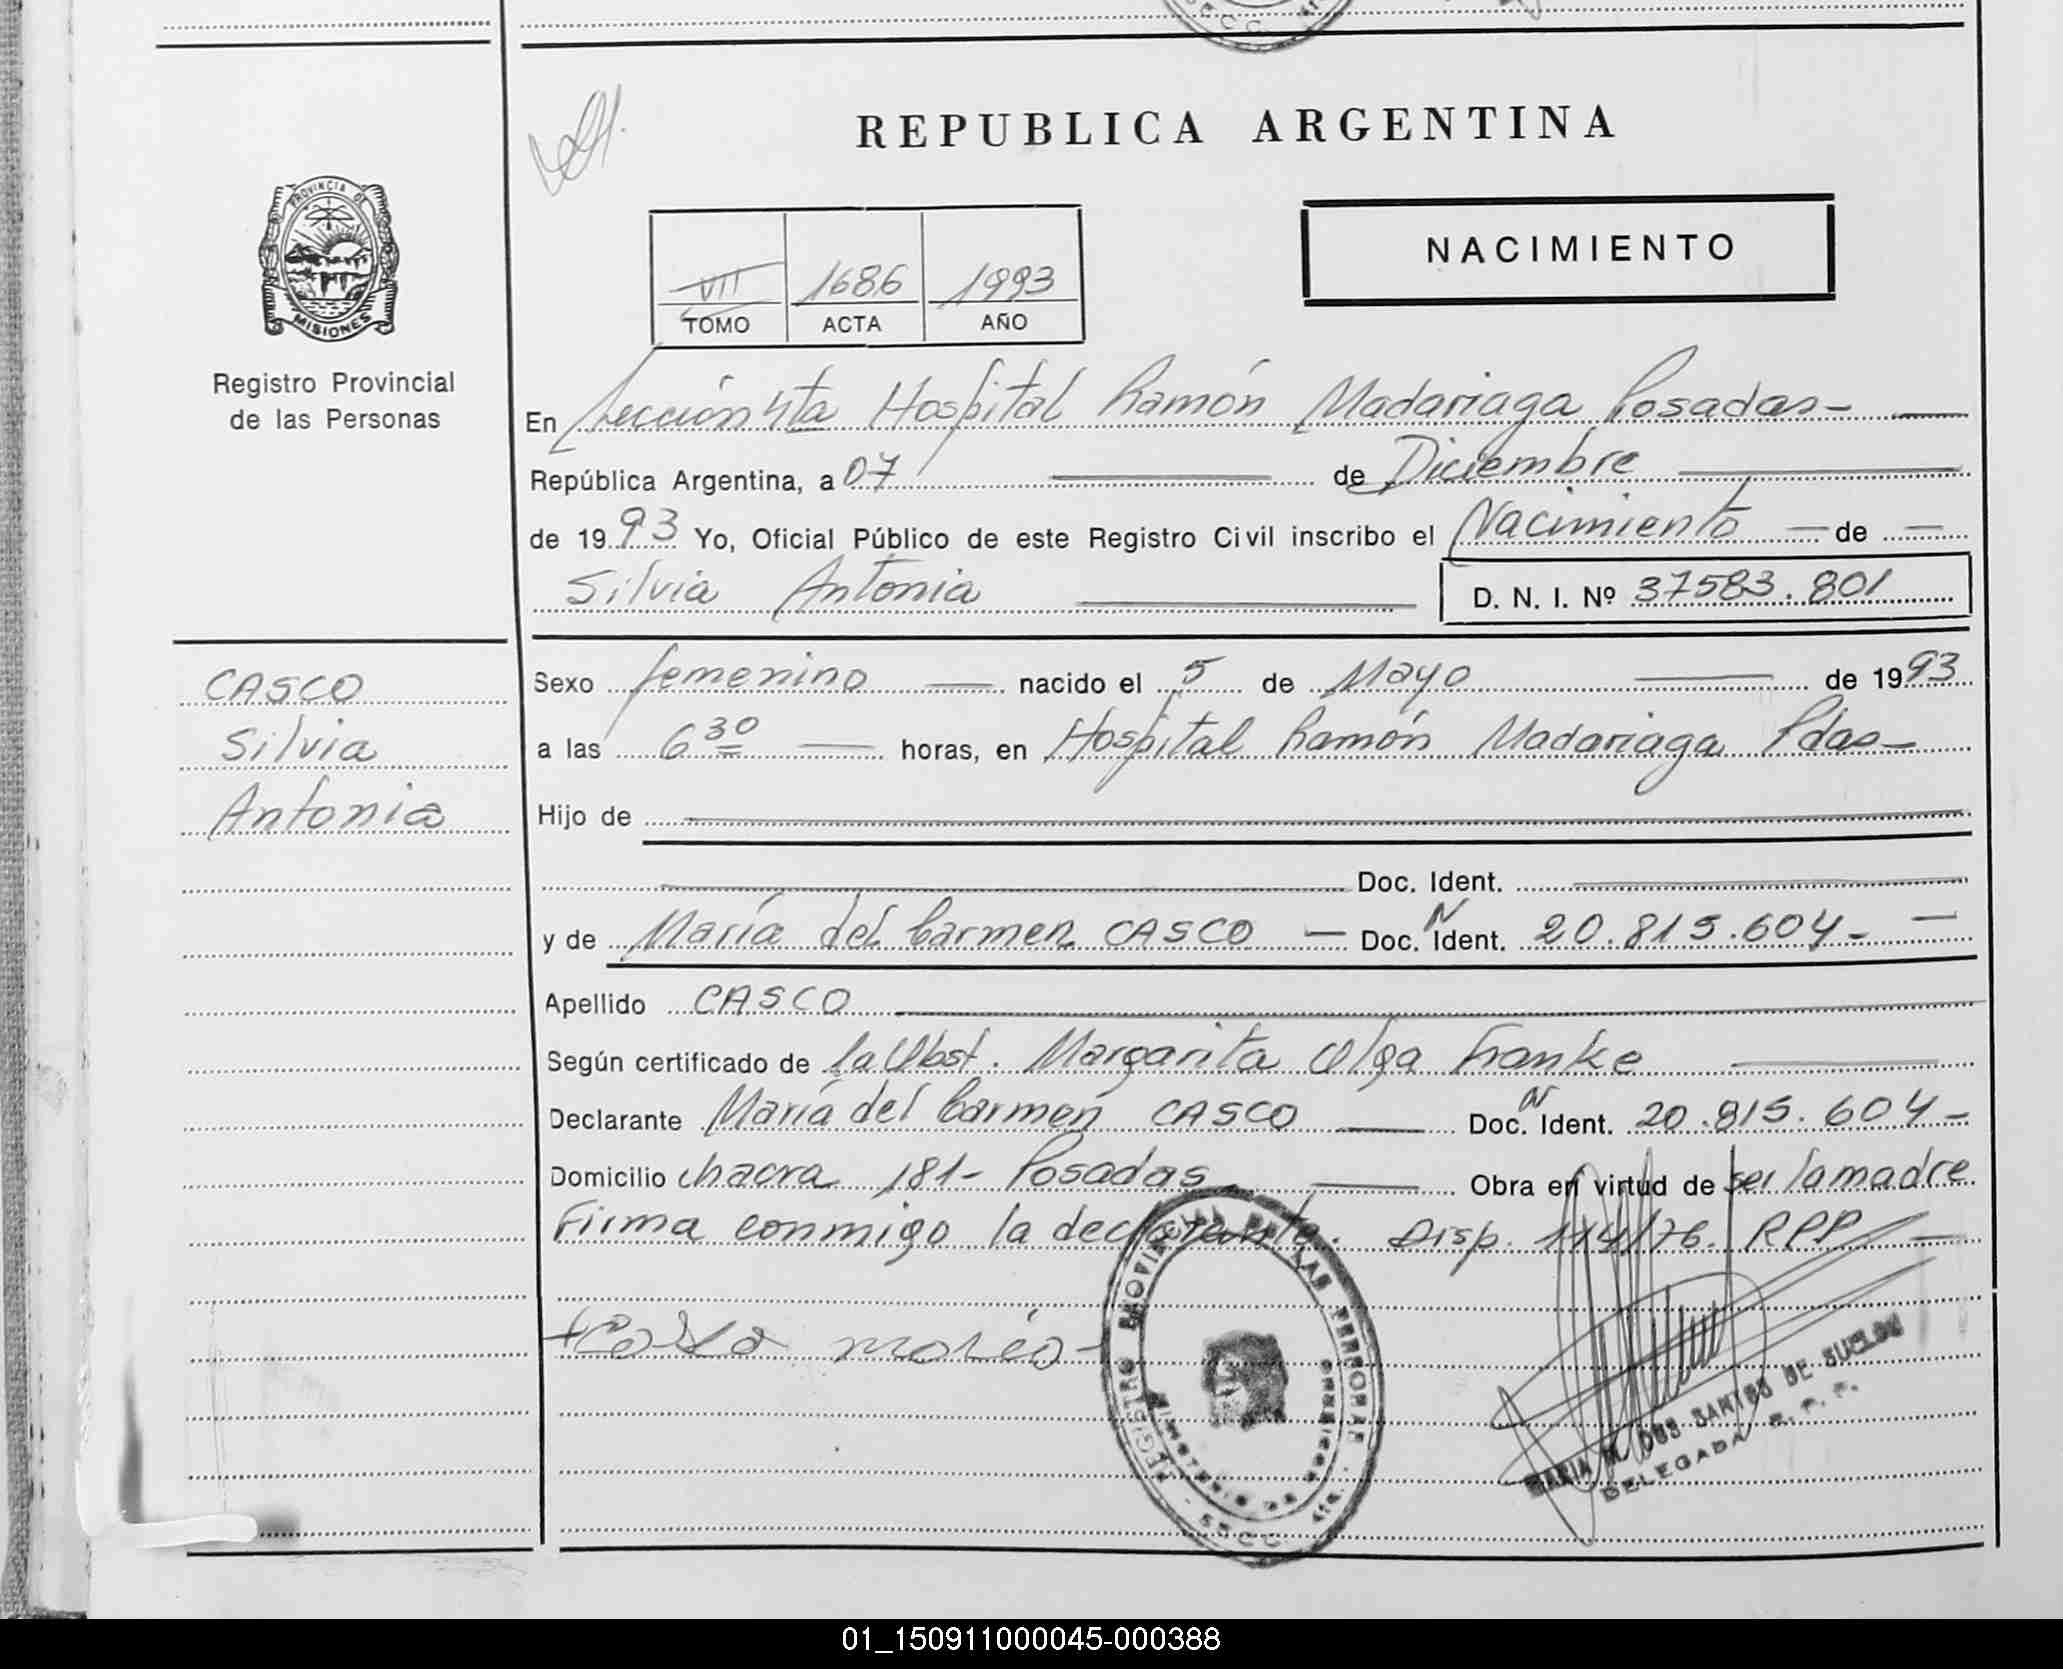 REPUBLICA ARGENTINA
PROVINCIA DE
MISIONES
Registro Provincial
de las Personas
VII 1686 1993
TOMO ACTA AÑO
NACIMIENTO
En Sección 4ta Hospital Ramón Madariaga Posadas-
República Argentina, a 07 de Diciembre
de 1993 Yo, Oficial Público de este Registro Civil inscribo el Nacimiento de
Silvia Antonia D. N. I. Nº 37583.801
CASCO
Silvia
Antonia
Sexo femenino nacido el 5 de Mayo de 1993
a las 6 30 horas, en Hospital Ramón Madariaga Pdas-
Hijo de
Doc. Ident.
y de María del Carmen CASCO Doc. N Ident. 20.815.604-
Apellido CASCO
Según certificado de la Obst. Margarita Olga Franke
Declarante María del Carmen CASCO Doc. N Ident. 20.815.604-
Domicilio chacra 181- Posadas Obra en virtud de ser la madre
Firma conmigo la declarante. Disp. 114/76. RPP
REGISTRO PROVINCIAL DE LAS PERSONAS
MINISTERIO DE
MARIA M. DOS SANTOS DE SUELDO
DELEGADA R. P. P.
01_150911000045-000388